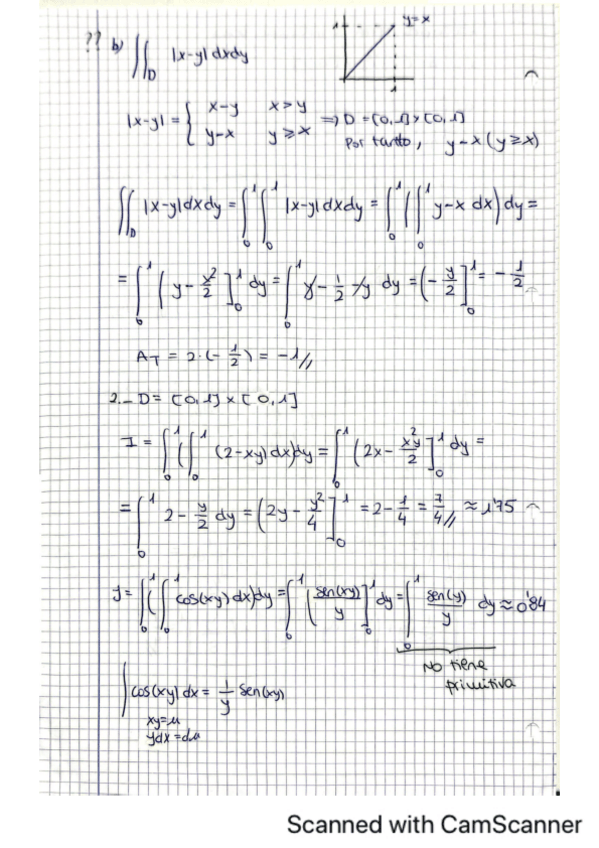 ?? b) ∬_D |x-y| dxdy
y=x
1
1
|x-y| = { x-y x>y
y-x y≥x ⇒ D = [0,1]×[0,1]
Por tanto, y-x (y≥x)
∬_D |x-y| dxdy = ∫₀¹∫₀¹ |x-y| dxdy = ∫₀¹(∫₀¹ y-x dx) dy =
= ∫₀¹ (y - x²/2]₀¹ dy = ∫₀¹ y - 1/2 - y dy = (-y/2]₀¹ = -1/2
A_T = 2·(-1/2) = -1//
2.- D = [0,1] × [0,1]
I = ∫₀¹(∫₀¹ (2-xy) dx) dy = ∫₀¹ (2x - x²y/2]₀¹ dy =
= ∫₀¹ 2 - y/2 dy = (2y - y²/4]₀¹ = 2 - 1/4 = 7/4// ≈ 1'75
J = ∫₀¹(∫₀¹ cos(xy) dx) dy = ∫₀¹ (sen(xy)/y]₀¹ dy = ∫₀¹ sen(y)/y dy ≈ 0'84
No tiene
primitiva
∫cos(xy) dx = 1/y sen(xy)
xy=u
ydx=du
Scanned with CamScanner